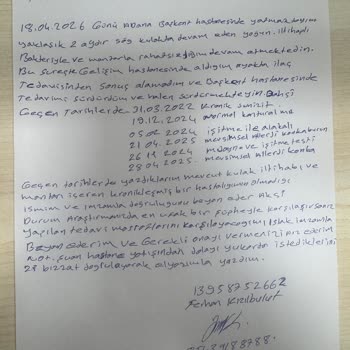 18.04.2026 Günü Adana Başkent hastanesinde yatmaktayım
yaklaşık 2 aydır sağ kulakda devam eden yoğun iltihaplı
Bakteriyle ve mantarla rahatsızlığım devam etmektedir.
Bu süreçte Gelişim hastanesinde aldığım ayakta ilaç
Tedavisinden Sonuç alamadım ve Başkent hastanesinde
Tedavimi Sürdürdüm ve halen sürdürmekteyim
Geçen Tarihlerde 31.03.2022 Kronik Sinüzit
19.12.2024 normal
05.02.2024 işitme ile alakalı
21.04.2025 mevsimsel alerji
26.11.2024 muayene ve işitme testi
28.04.2025 mevsimsel alerji
Geçen tarihlerde yazdıklarım mevcut kulak iltihabı ve
mantar içeren kronikleşmiş bir hastalığım olmadığı
ismim ve imzamla doğruluğunu beyan eder Aksi
Durum Araştırmanızda en ufak bir şüpheyle karşılaşırsanız
yapılan tedavi masraflarını karşılayacağımı ıslak imzamla
Beyan ederim ve Gerekli onayı vermenizi arz ederim
Not. Şuan hastane yatışından dolayı yukarda istediklerinizi
bizzat doğrulayarak elyazımla yazdım.
13958752662
Ferhan Kızılbulut